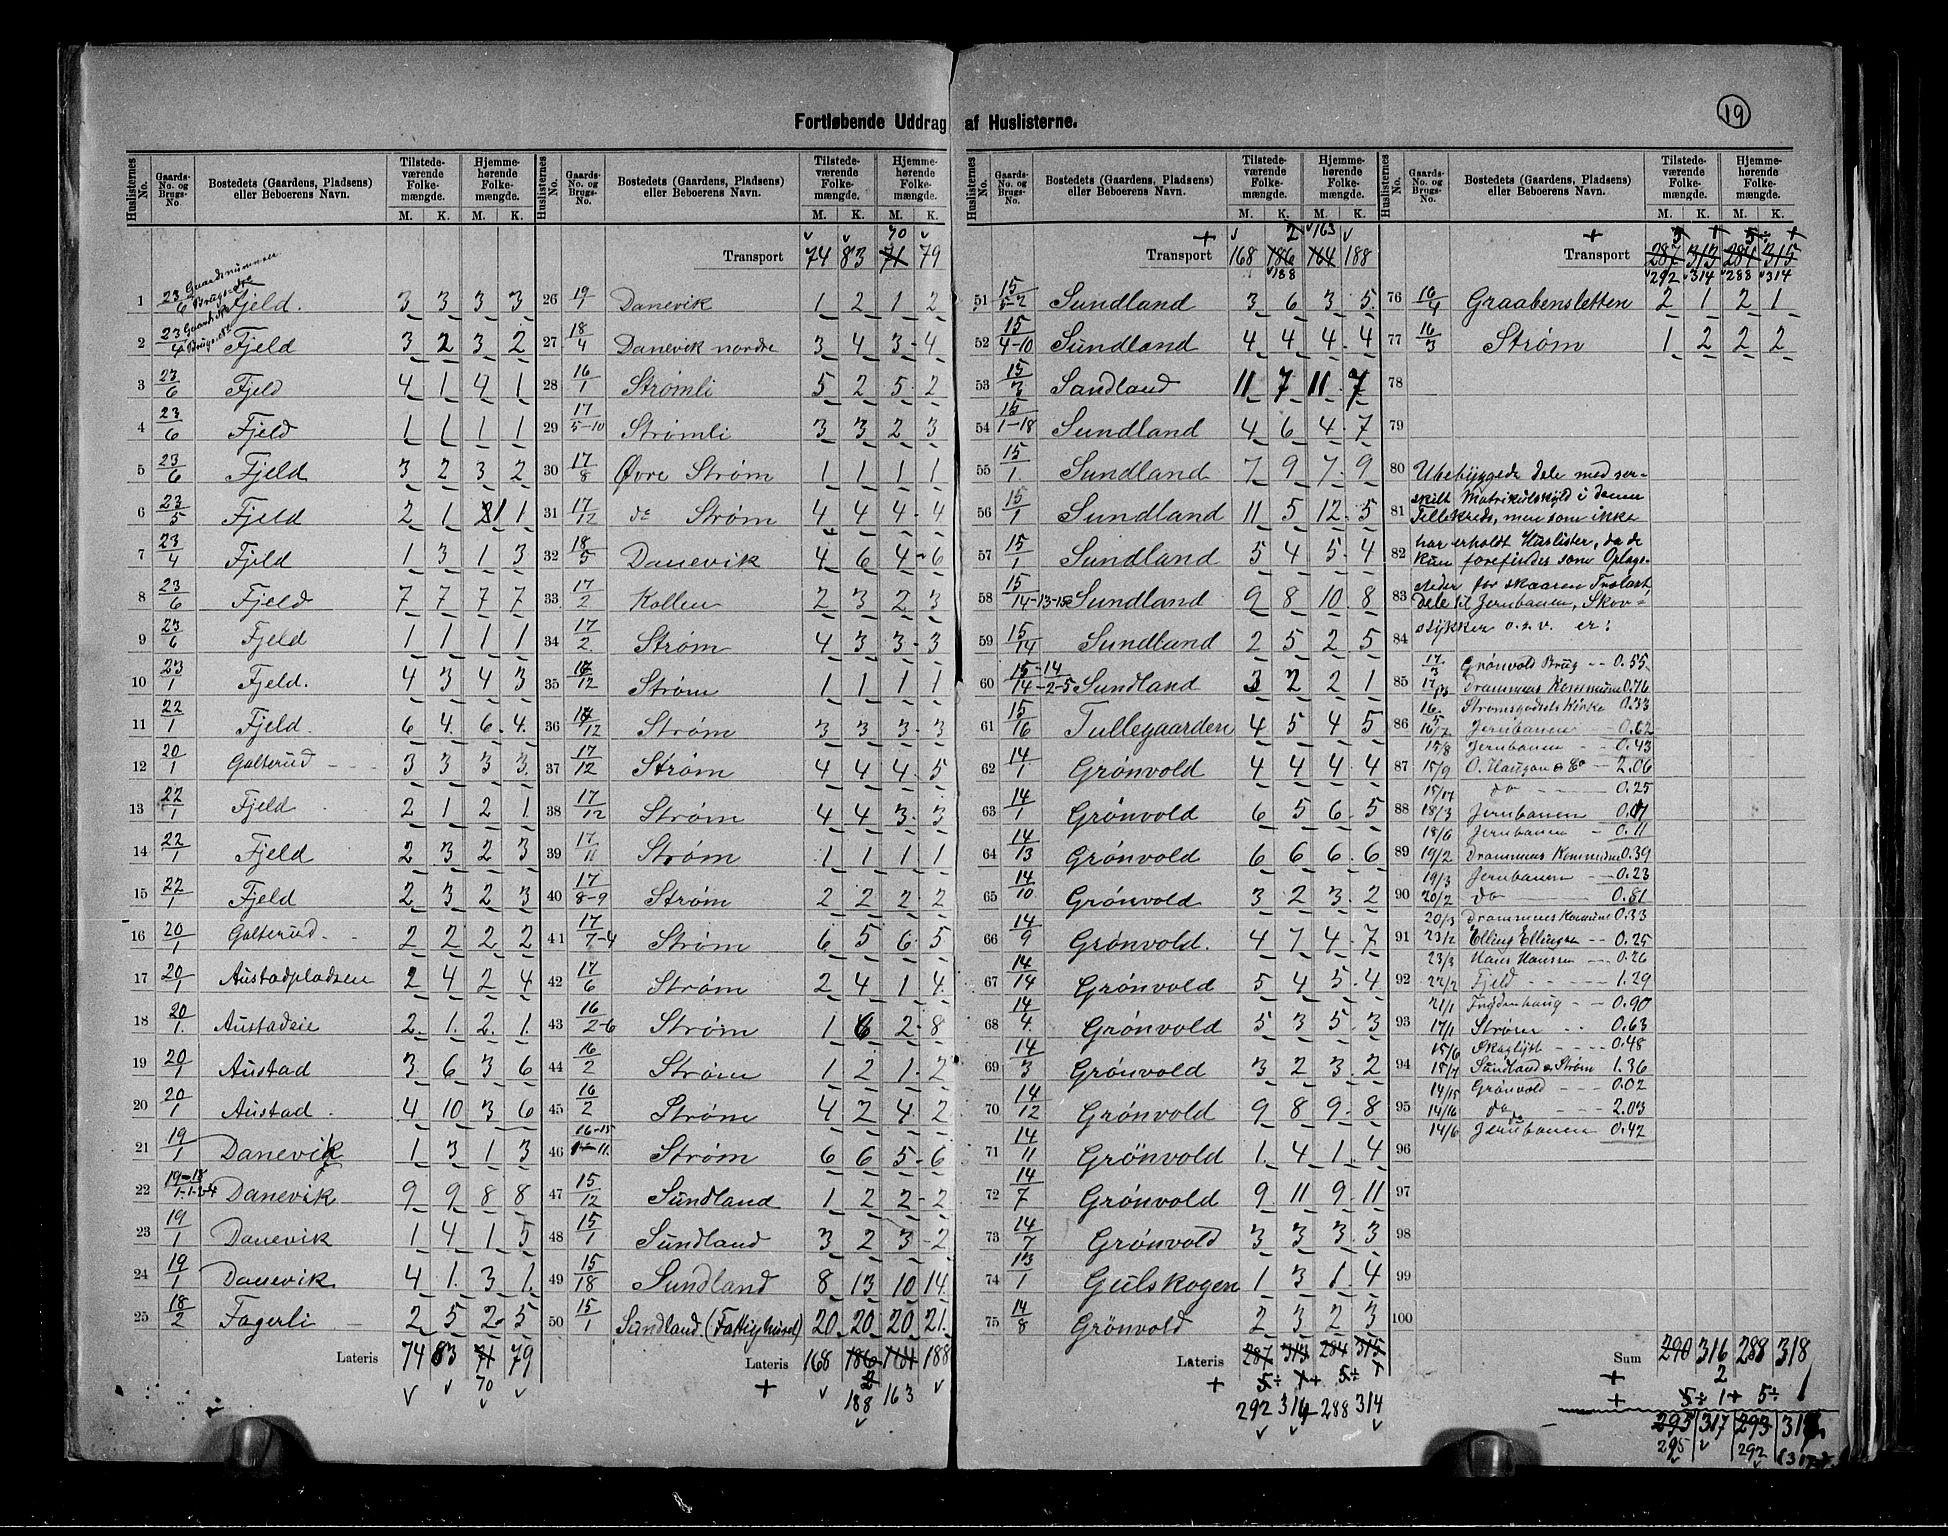 19
Fortløbende Uddrag af Huslisterne.
Huslisternes No. | Gaards-No. og Brugs-No. | Bostedets (Gaardens, Pladsens) eller Beboerens Navn. | Tilstedeværende Folkemængde. M. K. | Hjemmehørende Folkemængde. M. K.
1 23/6 Fjeld. 3 3 3 3
2 23/4 Fjeld 3 2 3 2
3 23/6 Fjeld 4 1 4 1
4 23/6 Fjeld 1 1 1 1
5 23/6 Fjeld 3 2 3 2
6 23/5 Fjeld 2 1 1 1
7 23/4 Fjeld 1 3 1 3
8 23/6 Fjeld 7 7 7 7
9 23/6 Fjeld 1 1 1 1
10 23/1 Fjeld. 4 3 4 3
11 22/1 Fjeld. 6 4 6 4
12 20/1 Galterud 3 3 3 3
13 22/1 Fjeld 2 1 2 1
14 22/1 Fjeld 2 3 2 3
15 22/1 Fjeld 2 3 2 3
16 20/1 Galterud 2 2 2 2
17 20/1 Austadpladsen 2 4 2 4
18 20/1 Austadeie 2 1 2 1
19 20/1 Austad 3 6 3 6
20 20/1 Austad 4 10 3 6
21 19/1 Danevik 1 3 1 3
22 Danevik 9 9 8 8
23 19/1 Danevik 1 4 1 5
24 19/1 Danevik 4 1 3 1
25 18/2 Fagerli 2 5 2 5
Lateris 74 83 71 79
70
Huslisternes No. | Gaards-No. og Brugs-No. | Bostedets (Gaardens, Pladsens) eller Beboerens Navn. | Tilstedeværende Folkemængde. M. K. | Hjemmehørende Folkemængde. M. K.
70
Transport 74 83 71 79
26 19/1 Danevik 1 2 1 2
27 18/4 Danevik nordre 3 4 3 4
28 16/1 Strømli 5 2 5 2
29 17/5-10 Strømli 3 3 2 3
30 17/8 Øvre Strøm 1 1 1 1
31 17/12 do Strøm 4 4 4 4
32 18/5 Danevik 4 6 4 6
33 17/2 Kollen 2 3 2 3
34 17/2 Strøm 4 3 3 3
35 17/12 Strøm 1 1 1 1
36 17/12 Strøm 3 3 3 3
37 17/12 Strøm 4 4 4 5
38 17/12 Strøm 4 4 3 3
39 17/11 Strøm 1 1 1 1
40 17/8-9 Strøm 2 2 2 2
41 17/7-4 Strøm 6 5 6 5
42 17/6 Strøm 2 4 1 4
43 16/2-6 Strøm 1 6 2 8
44 16/2 Strøm 1 2 1 2
45 16/2 Strøm 4 2 4 2
46 16-15/1-11 Strøm 6 6 5 6
47 15/12 Sundland 1 2 2 2
48 15/1 Sundland 3 2 3 2
49 15/18 Sundland 8 13 10 14
50 15/1 Sundland. (Fattighuset) 20 20 20 21
Lateris 168 186 164 188
188 163
Huslisternes No. | Gaards-No. og Brugs-No. | Bostedets (Gaardens, Pladsens) eller Beboerens Navn. | Tilstedeværende Folkemængde. M. K. | Hjemmehørende Folkemængde. M. K.
2 163
Transport 168 186 164 188
188
51 15/5-2 Sundland 3 6 3 5
52 15/4-10 Sundland 4 4 4 4
53 15/3 Sandland 11 7 11 7
54 15/1-18 Sundland 4 6 4 7
55 15/1 Sundland 7 9 7 9
56 15/1 Sundland 11 5 12 5
57 15/1 Sundland 5 4 5 4
58 15/14-13-15 Sundland 9 8 10 8
59 15/14 Sundland 2 5 2 5
60 15-14/14-2-5 Sundland 3 2 2 1
61 15/16 Tullegaarden 4 5 4 5
62 14/1 Grønvold 4 4 4 4
63 14/1 Grønvold 6 5 6 5
64 14/13 Grønvold 6 6 6 6
65 14/10 Grønvold 3 2 3 2
66 14/9 Grønvold. 4 7 4 7
67 14/14 Grønvold 5 4 5 4
68 14/4 Grønvold 5 3 5 3
69 14/3 Grønvold 3 2 3 2
70 14/12 Grønvold 9 8 9 8
71 14/11 Grønvold 1 4 1 4
72 14/7 Grønvold 9 11 9 11
73 14/7 Grønvold 3 3 3 3
74 13/1 Gulskogen 1 3 1 4
75 14/8 Grønvold 2 3 2 3
Lateris 287 313 284 315
292 314 288 314
Huslisternes No. | Gaards-No. og Brugs-No. | Bostedets (Gaardens, Pladsens) eller Beboerens Navn. | Tilstedeværende Folkemængde. M. K. | Hjemmehørende Folkemængde. M. K.
Transport 287 313 284 315
292 314 288 314
76 16/4 Graabensletten 2 1 2 1
77 16/3 Strøm 1 2 2 2
78
79
80 Ubebyggede dele med sær-
skilt Matrikulskyld i denne
81 Tællekreds, men som ikke
har erholdt Huslister, da de
82 kun forefindes som Oplags-
steder for skaaren Trælast,
83 dele til Jernbanen, Skov-
stykker o.s.v. er:
84
17/3 Grønvold Brug 0.55
85 17/13 Drammens Kommune 0.76
16/5 Strømsgodsets Kirke 0.33
86 16/7 Jernbanen 0.62
15/8 Jernbanen 0.43
87 15/9 O. Haugan & Co 2.06
15/17 do 0.25
88 18/3 Jernbanen 0.07
18/6 Jernbanen 0.11
89 19/2 Drammens Kommune 0.39
19/3 Jernbanen 0.23
90 20/2 do 0.81
20/3 Drammens Komune 0.33
91 23/2 Elling Ellingsen 0.25
23/3 Hans Hanssen 0.26
92 22/2 Fjeld 1.29
21/1 0.90
93 17/1 Strøm 0.63
15/6 Skoglyst 0.48
94 15/7 Sundland & Strøm 1.36
14/15 Grønvold 0.02
95 14/16 do 2.03
14/6 Jernbanen 0.42
96
97
98
99
100
Sum 290 316 288 318
2
5 1 5 1
295 317 293
295 292